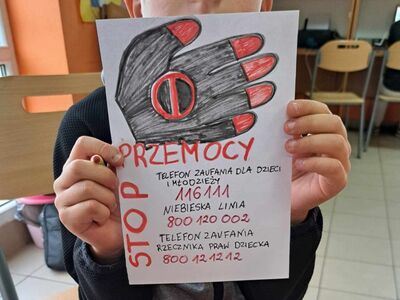 STOP
PRZEMOCY
TELEFON ZAUFANIA DLA DZIECI
I MŁODZIEŻY
116111
NIEBIESKA LINIA
800 120 002
TELEFON ZAUFANIA
RZECZNIKA PRAW DZIECKA
800 12 12 12